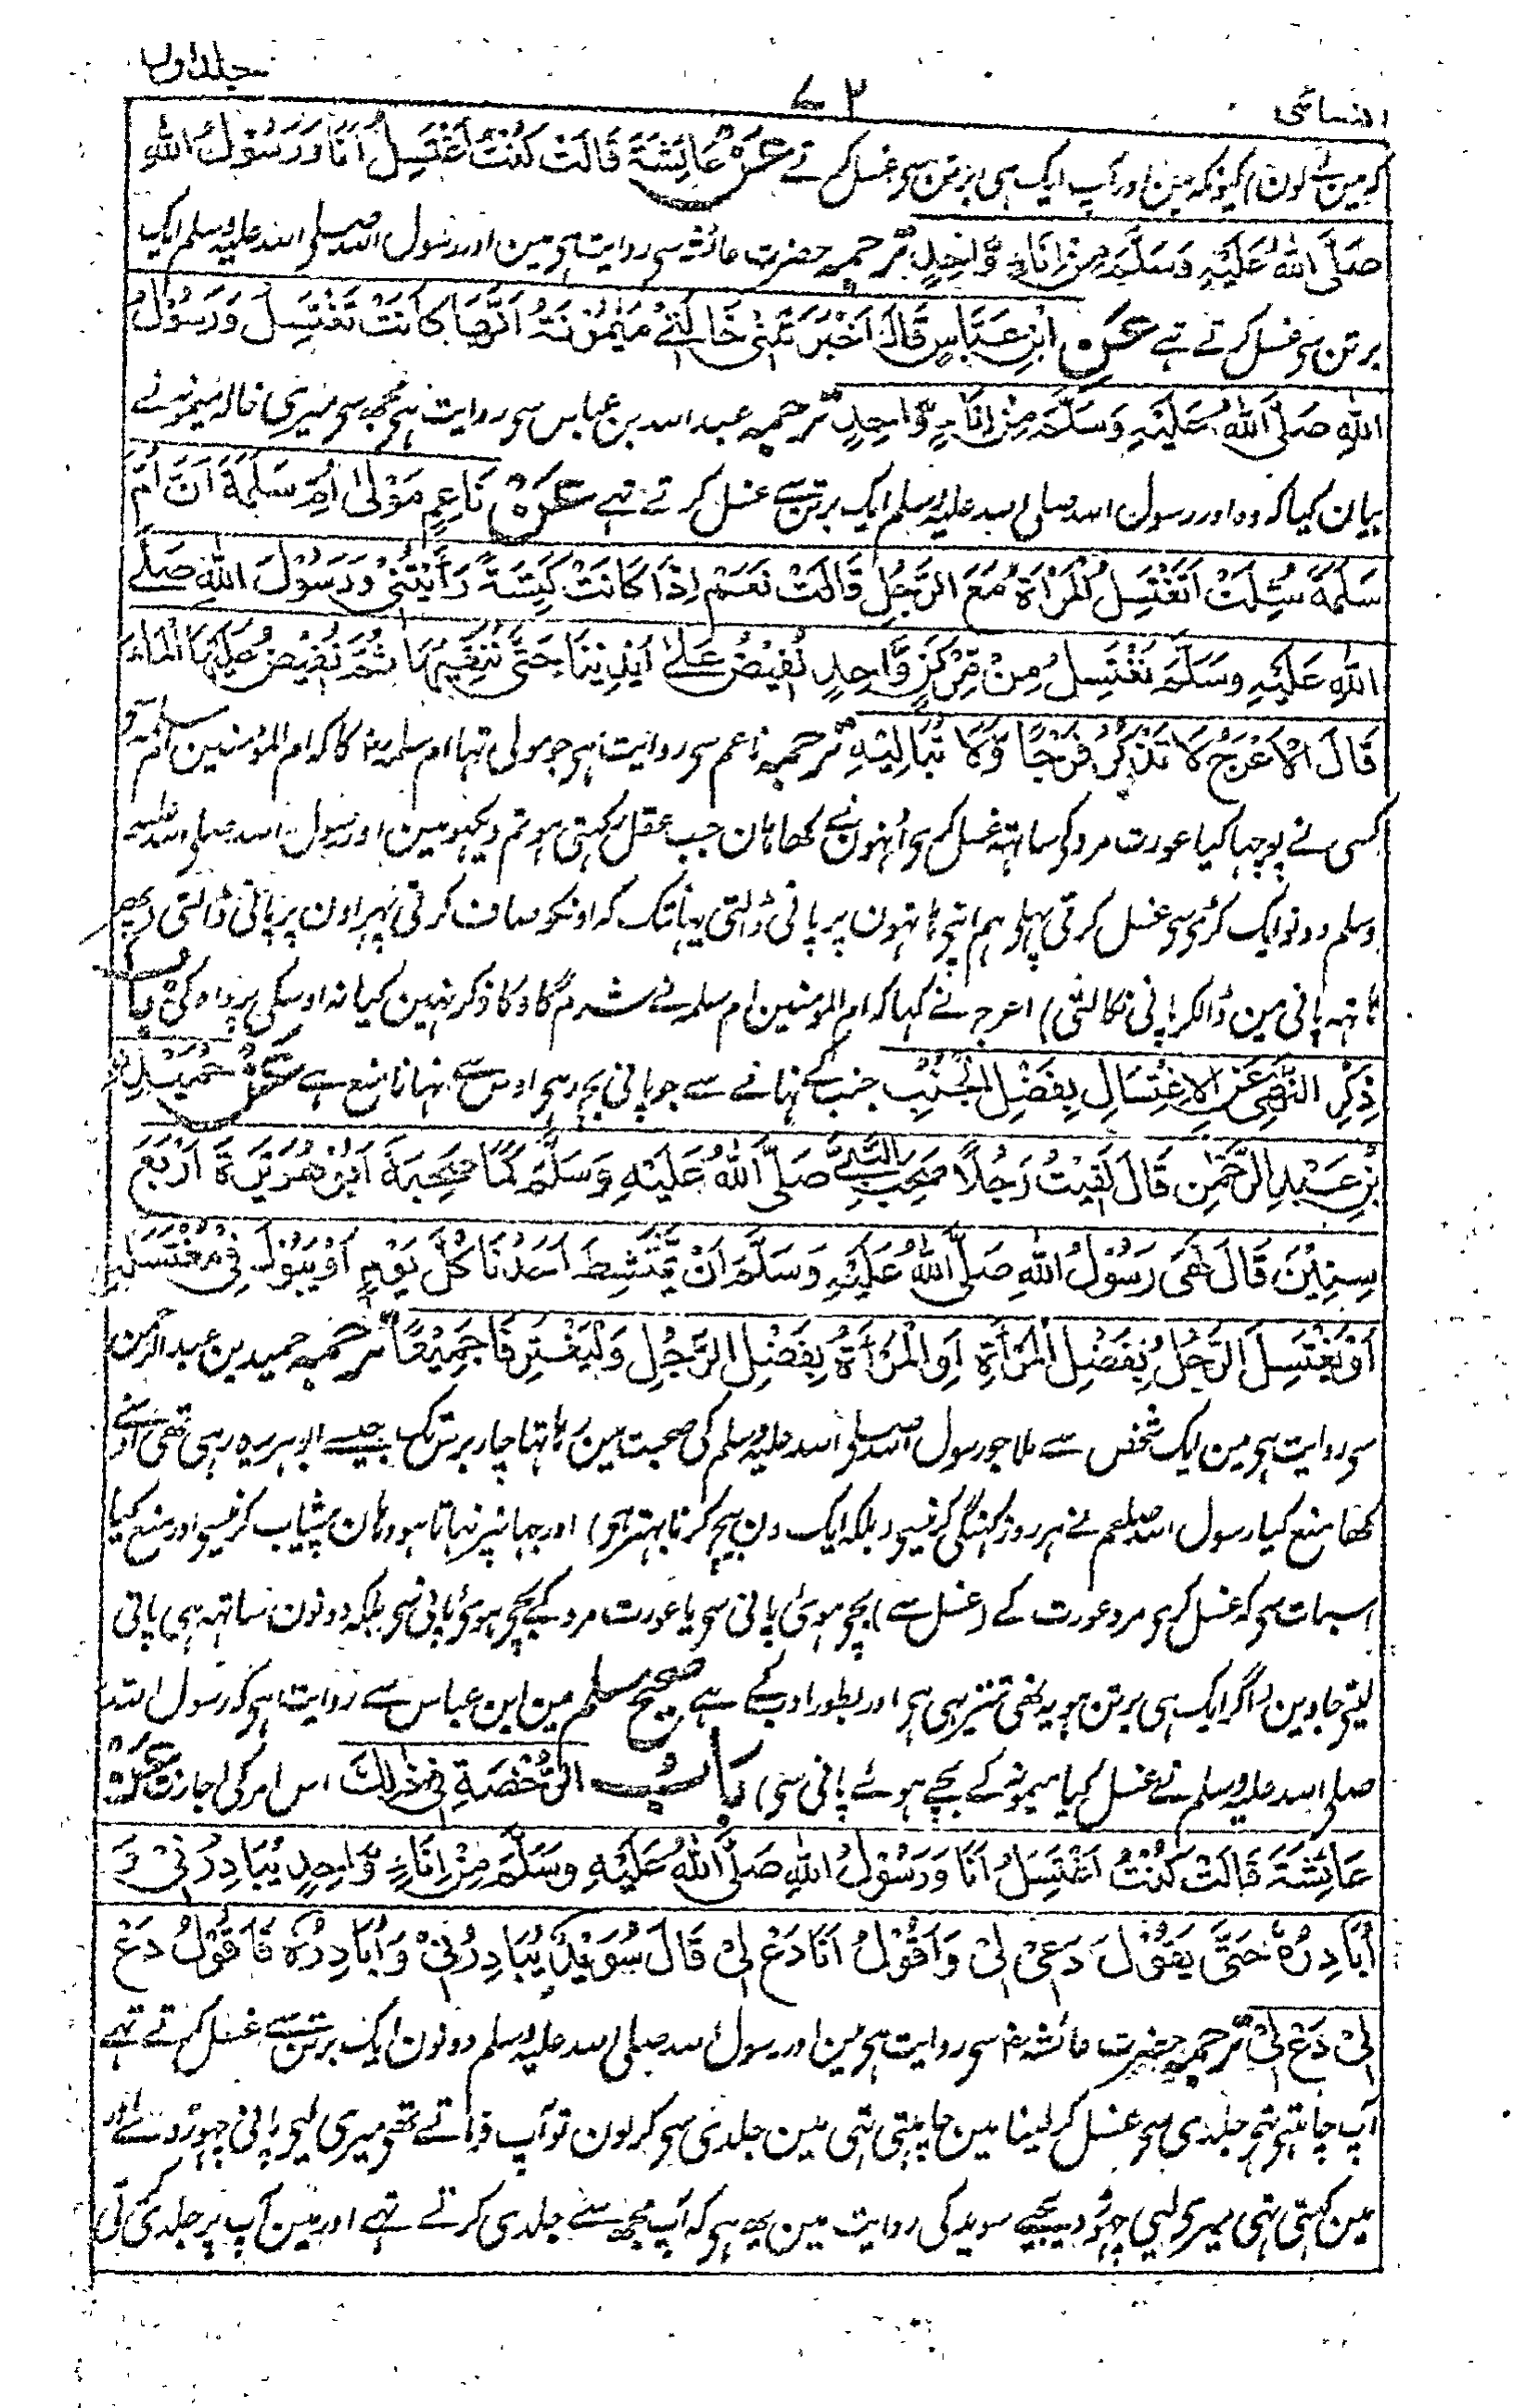 النسائی ۷۲ جلد اول
کہ مین نے لون) کیونکہ مین اور آپ ایک ہی برتن سی غسل کرتے عَنْ عَائِشَةَ قَالَتْ كُنْتُ اَغْتَسِلُ اَنَا وَرَسُوْلُ اللّٰهِ
صَلَّى اللّٰهُ عَلَيْهِ وَسَلَّمَ مِنْ اِنَاءٍ وَّاحِدٍ ترجمہ حضرت عائشہ سی روایت ہی مین اور رسول اللہ صلی اللہ علیہ وسلم ایک
برتن سی غسل کرتے تہے عَنِ ابْنِ عَبَّاسٍ قَالَ اَخْبَرَتْنِیْ خَالَتِیْ مَيْمُوْنَةُ اَنَّهَا كَانَتْ تَغْتَسِلُ وَرَسُوْلُ
اللّٰهِ صَلَّى اللّٰهُ عَلَيْهِ وَسَلَّمَ مِنْ اِنَاءٍ وَّاحِدٍ ترجمہ عبد اللہ بن عباس سی روایت ہی مجھ سی میری خالہ میمونہ نے
بیان کیا کہ وہ اور رسول اللہ صلی اللہ علیہ وسلم ایک برتن سے غسل کرتے تہے عَنْ نَاعِمٍ مَوْلٰى اُمِّ سَلَمَةَ اَنَّ اُمَّ
سَلَمَةَ سُئِلَتْ اَتَغْتَسِلُ الْمَرْاَةُ مَعَ الرَّجُلِ قَالَتْ نَعَمْ اِذَا كَانَتْ كَيِّسَةً رَاَيْتُنِیْ وَرَسُوْلَ اللّٰهِ صَلَّى
اللّٰهِ عَلَيْهِ وَسَلَّمَ نَغْتَسِلُ مِنْ مِرْكَنٍ وَّاحِدٍ نُفِيْضُ عَلٰى اَيْدِيْنَا حَتّٰى نُنَقِّيَهُمَا ثُمَّ نُفِيْضُ عَلَيْهَا الْمَاءَ
قَالَ الْاَعْرَجُ لَا تَذْكُرُ فَرْجًا وَّلَا تُبَالِيْهِ ترجمہ ناعم سی روایت ہی جو مولی تہا ام سلمہ کا کہ ام المؤمنین ام سلمہ سی
کسی نے پوچہا کیا عورت مرد کی ساتہ غسل کری اُنہون نے کہا ہان جب عقل رکہتی ہو تم دیکہو مین اور رسول اللہ صلی اللہ علیہ
وسلم دونو ایک کڑی سی غسل کرتی پہلی ہم اپنی ہاتہون پر پانی ڈالتی یہانتک کہ اونکو صاف کرتی پہر اون پر پانی ڈالتی (پھر
ہاتہہ پانی مین ڈالکر پانی نکالتی) اعرج نے کہا کہ ام المومنین ام سلمہ نے شرمگاہ کا ذکر نہین کیا نہ اوسکی پرواہ کی بَابُ
ذِكْرِ النَّهْیِ عَنِ الْاِغْتِسَالِ بِفَضْلِ الْجُنُبِ جنب کے نہانے سے جو پانی بچ رہی اوس سے نہانا منع ہے عَنْ حُمَيْدِ
بْنِ عَبْدِ الرَّحْمٰنِ قَالَ لَقِيْتُ رَجُلًا صَحِبَ النَّبِیَّ صَلَّى اللّٰهُ عَلَيْهِ وَسَلَّمَ كَمَا صَحِبَهٗ اَبُوْ هُرَيْرَةَ اَرْبَعَ
سِنِيْنَ قَالَ نَهٰى رَسُوْلُ اللّٰهِ صَلَّى اللّٰهُ عَلَيْهِ وَسَلَّمَ اَنْ يَّمْتَشِطَ اَحَدُنَا كُلَّ يَوْمٍ اَوْ يَبُوْلَ فِیْ مُغْتَسَلِهٖ
اَوْ يَغْتَسِلَ الرَّجُلُ بِفَضْلِ الْمَرْاَةِ اَوِ الْمَرْاَةُ بِفَضْلِ الرَّجُلِ وَلْيَغْتَرِفَا جَمِيْعًا ترجمہ حمید بن عبد الرحمن
سی روایت ہی مین ایک شخص سے ملا جو رسول اللہ صلی اللہ علیہ وسلم کی صحبت مین رہا تہا چار برس تک جیسے ابو ہریرہ رہی تھی
کہا منع کیا رسول اللہ صلعم نے ہر روز کنگہی کرنیسے (بلکہ ایک دن بیچ کرنا بہتر ہی) اور جہانپر نہاتا ہو وہان پیشاب کرنیسی اور منع کیا
اسبات سی کہ غسل کری مرد عورت کے (غسل سے) بچی ہوئ پانی سی یا عورت مرد کے بچی ہوئ پانی سی بلکہ دونون ساتہہ ہی پانی
لیتی جاوین (اگر ایک ہی برتن ہو یہ نہی تنزیہی ہی اور بطور ادب کے ہے صحیح مسلم مین ابن عباس سے روایت ہی کہ رسول اللہ
صلی اللہ علیہ وسلم نے غسل کیا میمونہ کے بچے ہوئے پانی سی) بَابُ الرُّخْصَةِ فِیْ ذٰلِكَ اس امر کی اجازت عَنْ
عَائِشَةَ قَالَتْ كُنْتُ اَغْتَسِلُ اَنَا وَرَسُوْلُ اللّٰهِ صَلَّى اللّٰهُ عَلَيْهِ وَسَلَّمَ مِنْ اِنَاءٍ وَّاحِدٍ يُبَادِرُنِیْ وَ
اُبَادِرُهٗ حَتّٰى يَقُوْلَ دَعِیْ لِیْ وَاَقُوْلُ اَنَا دَعْ لِیْ قَالَ سُوَيْدٌ يُبَادِرُنِیْ وَاُبَادِرُهٗ فَاَقُوْلُ دَعْ
لِیْ دَعْ لِیْ ترجمہ حضرت عائشہ سی روایت ہی مین اور رسول اللہ صلی اللہ علیہ وسلم دونون ایک برتن سے غسل کرتے تہے
آپ چاہتی تہی جلدی سی غسل کر لینا مین چاہتی تہی مین جلدی سی کر لون تو آپ فرماتے تھی میری لیی پانی چہوڑ دے اور
مین کہتی تہی میری لیی چہوڑ دیجیے سوید کی روایت مین یہ ہی کہ آپ مجھ سے جلدی کرتے تہے اور مین آپ پر جلدی کرتی